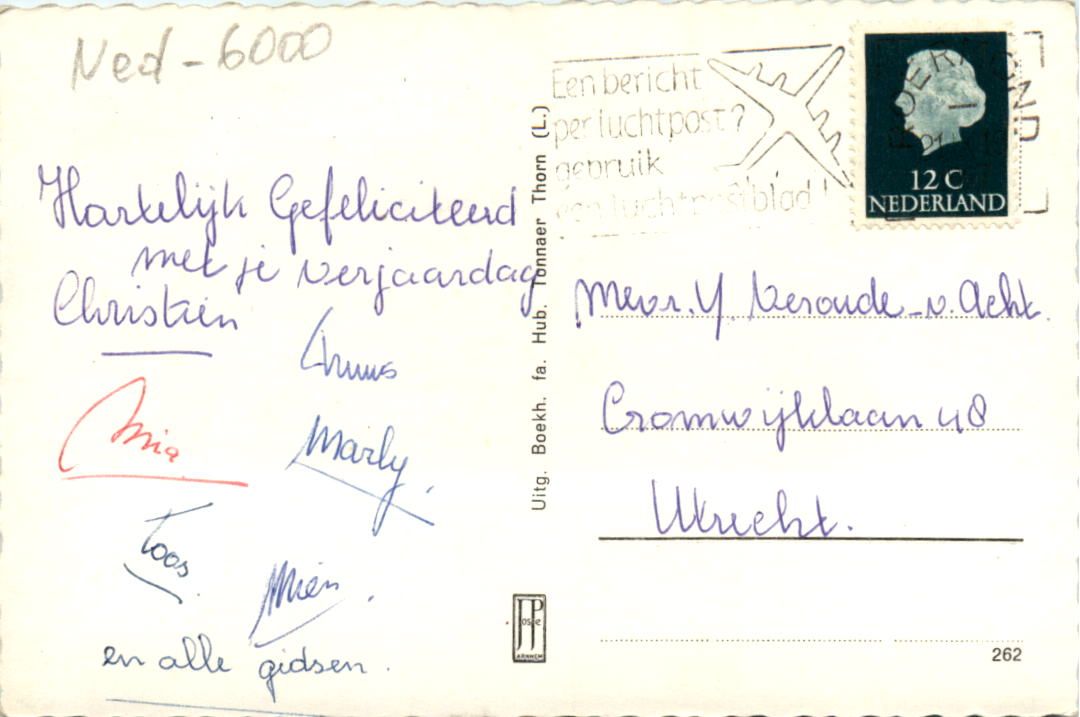 Ned - 6000
Hartelijk Gefeliciteerd
met je verjaardag
Christien
Truus
Mia
Marly.
Toos
Mien.
en alle gidsen.
Uitg. Boekh. fa. Hub. Tonnaer Thorn (L.)
JosPe
ARNHEM
Een bericht
per luchtpost?
gebruik
een luchtpostblad!
ROERMOND
12 C
NEDERLAND
Mevr. Y. Veroude - v. Acht.
Cromwijklaan 48
Utrecht.
262